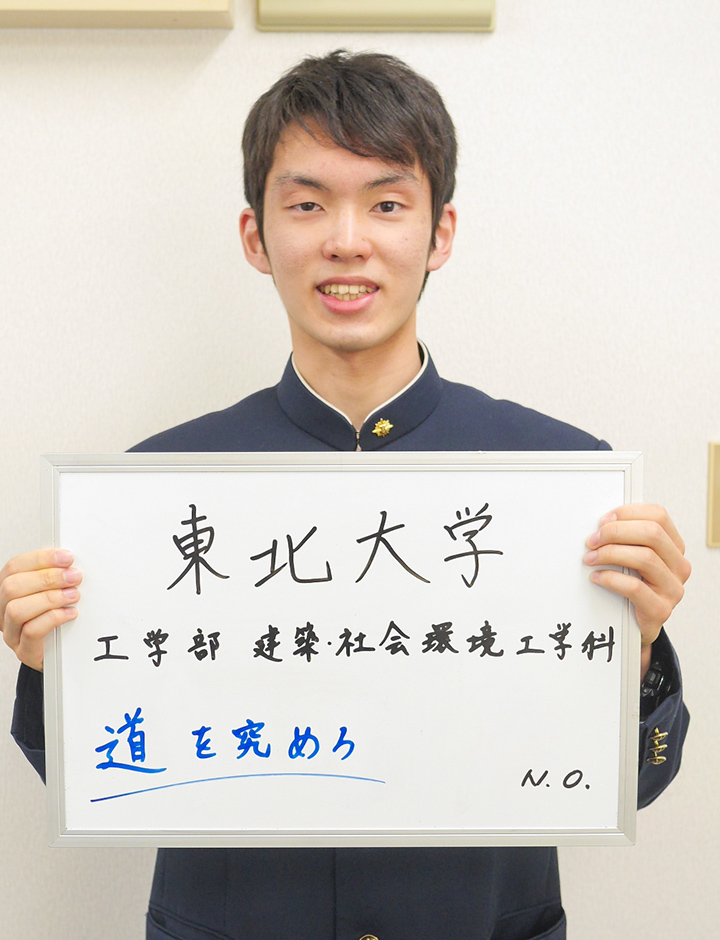 東北大学
工学部 建築・社会環境工学科
道を究めろ
N.O.